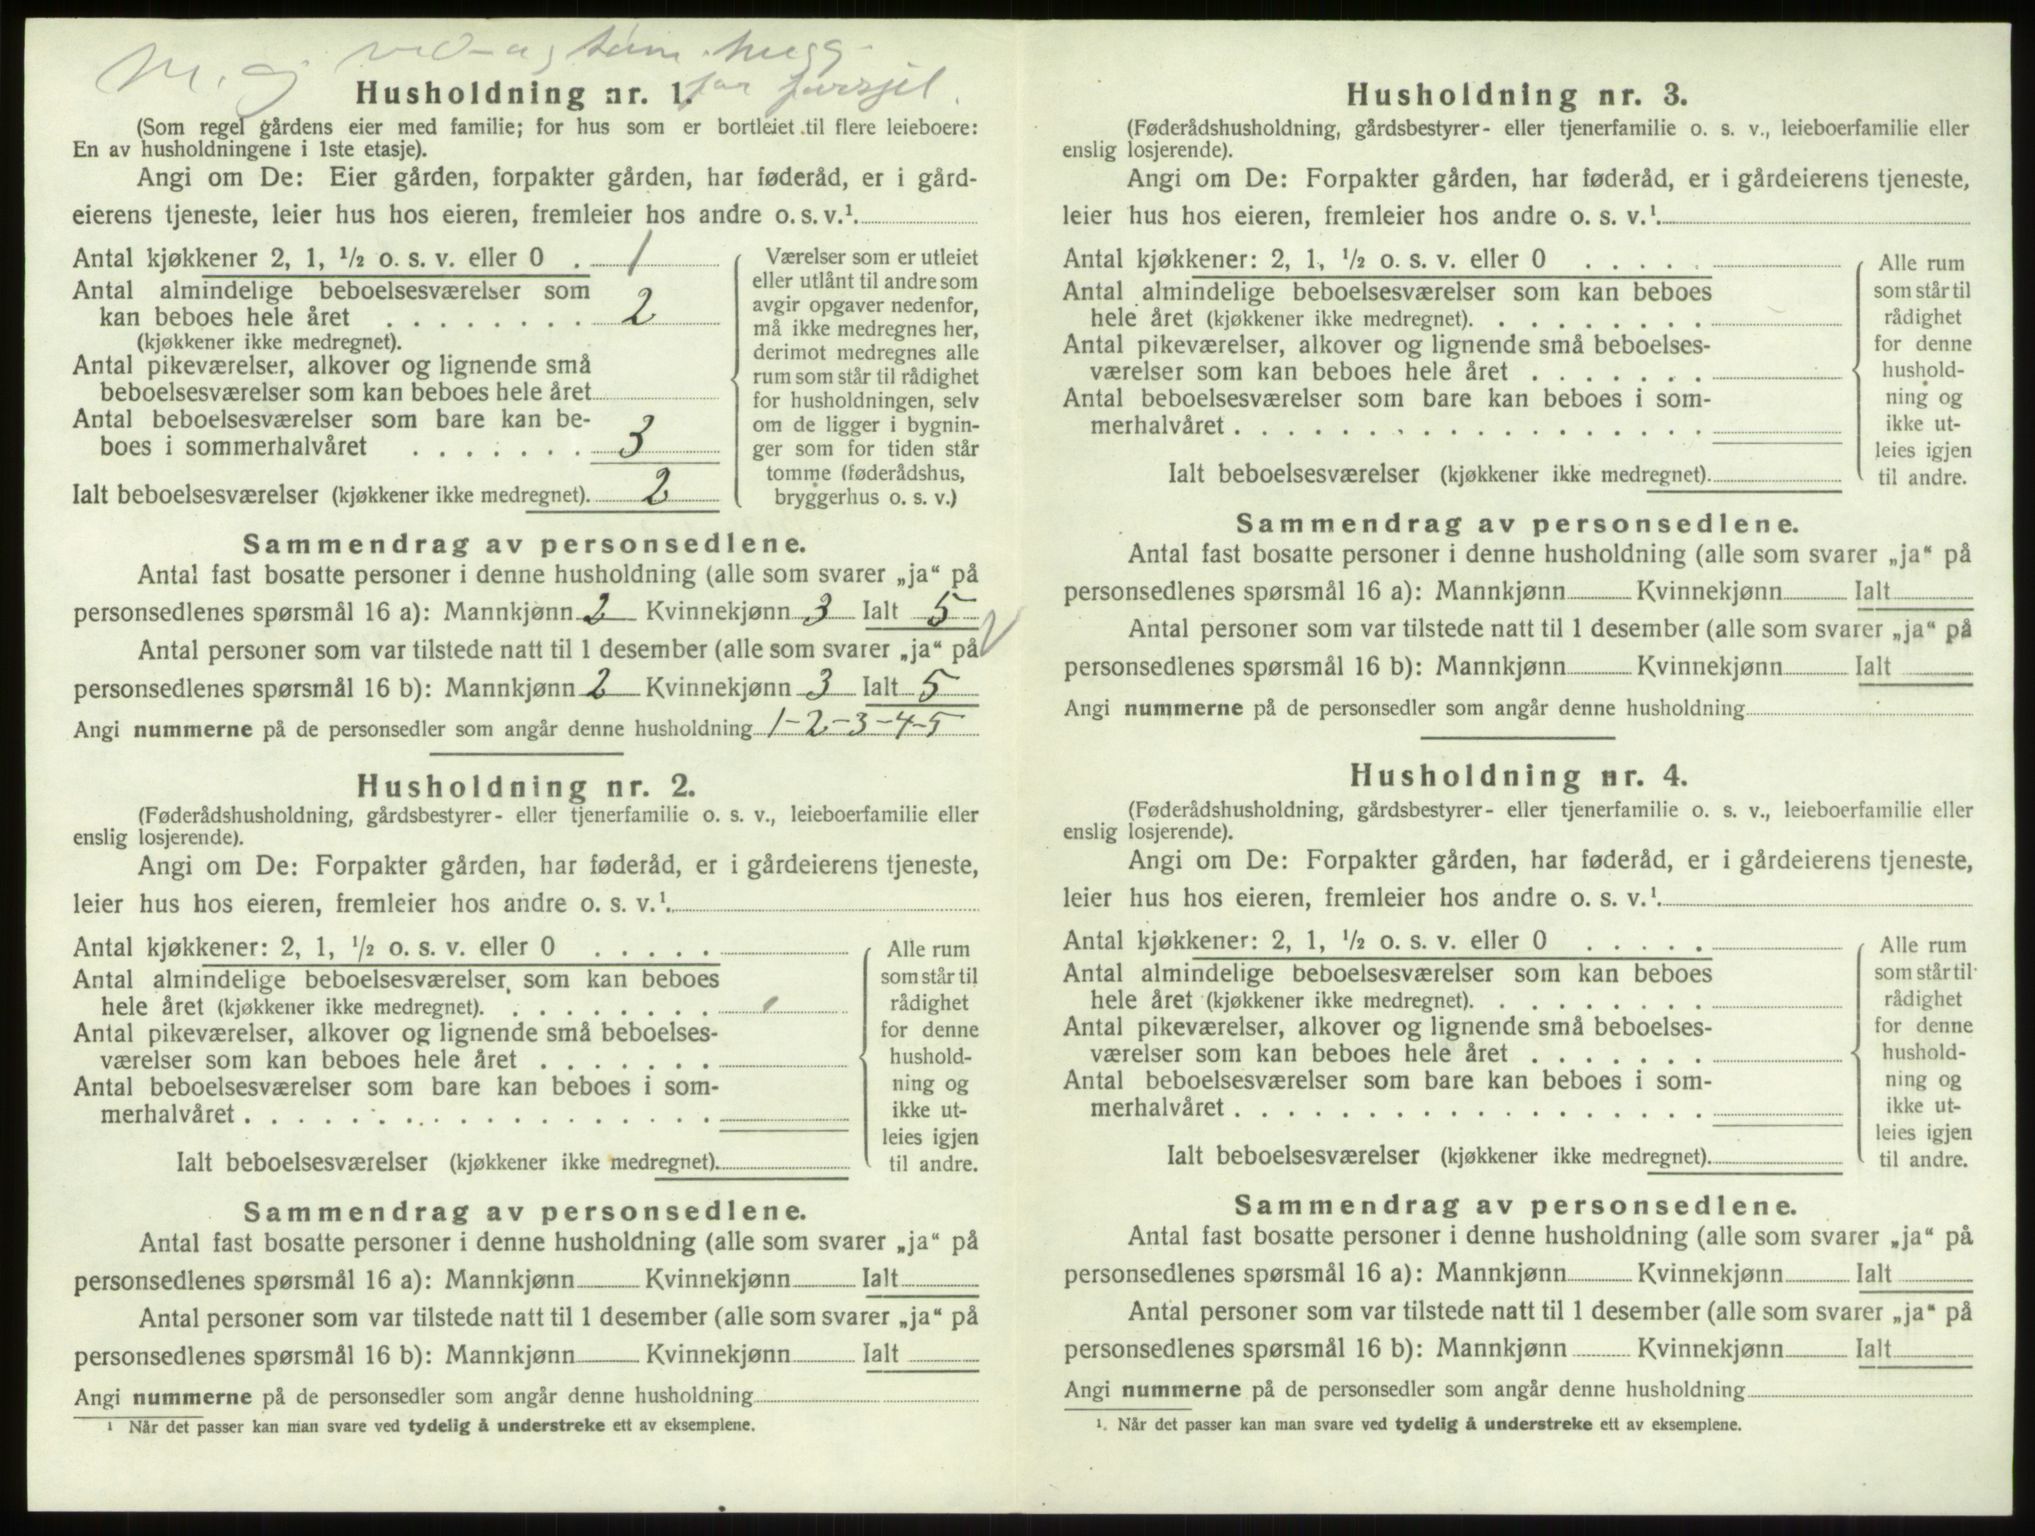 M. og ved- og tøm. hugg
for
Husholdning nr. 1.
(Som regel gårdens eier med familie; for hus som er bortleiet til flere leieboere:
En av husholdningene i 1ste etasje).
Angi om De: Eier gården, forpakter gården, har føderåd, er i gård-
eierens tjeneste, leier hus hos eieren, fremleier hos andre o. s. v.¹.
Antal kjøkkener 2, 1, ½ o. s. v. eller 0 . 1
Antal almindelige beboelsesværelser som
kan beboes hele året . . . . . . . . 2
(kjøkkener ikke medregnet).
Antal pikeværelser, alkover og lignende små
beboelsesværelser som kan beboes hele året
Antal beboelsesværelser som bare kan be-
boes i sommerhalvåret . . . . . . . 3
Ialt beboelsesværelser (kjøkkener ikke medregnet). 2
Værelser som er utleiet
eller utlånt til andre som
avgir opgaver nedenfor,
må ikke medregnes her,
derimot medregnes alle
rum som står til rådighet
for husholdningen, selv
om de ligger i bygnin-
ger som for tiden står
tomme (føderådshus,
bryggerhus o. s. v.)
Sammendrag av personsedlene.
Antal fast bosatte personer i denne husholdning (alle som svarer „ja“ på
personsedlenes spørsmål 16 a): Mannkjønn 2 Kvinnekjønn 3 Ialt 5
Antal personer som var tilstede natt til 1 desember (alle som svarer „ja“ på
personsedlenes spørsmål 16 b): Mannkjønn 2 Kvinnekjønn 3 Ialt 5
Angi nummerne på de personsedler som angår denne husholdning 1-2-3-4-5
Husholdning nr. 2.
(Føderådshusholdning, gårdsbestyrer- eller tjenerfamilie o. s. v., leieboerfamilie eller
enslig losjerende).
Angi om De: Forpakter gården, har føderåd, er i gårdeierens tjeneste,
leier hus hos eieren, fremleier hos andre o. s. v.¹.
Antal kjøkkener: 2, 1, ½ o. s. v. eller 0 . . . . .
Antal almindelige beboelsesværelser som kan beboes
hele året (kjøkkener ikke medregnet). . . . . . . . .
Antal pikeværelser, alkover og lignende små beboelses-
værelser som kan beboes hele året . . . . . . .
Antal beboelsesværelser som bare kan beboes i som-
merhalvåret . . . . . . . . . . . . . . . . . .
Ialt beboelsesværelser (kjøkkener ikke medregnet).
Alle rum
som står til
rådighet
for denne
hushold-
ning og
ikke ut-
leies igjen
til andre.
Sammendrag av personsedlene.
Antal fast bosatte personer i denne husholdning (alle som svarer „ja“ på
personsedlenes spørsmål 16 a): Mannkjønn Kvinnekjønn Ialt
Antal personer som var tilstede natt til 1 desember (alle som svarer „ja“ på
personsedlenes spørsmål 16 b): Mannkjønn Kvinnekjønn Ialt
Angi nummerne på de personsedler som angår denne husholdning
¹ Når det passer kan man svare ved tydelig å understreke ett av eksemplene.
Husholdning nr. 3.
(Føderådshusholdning, gårdsbestyrer- eller tjenerfamilie o. s. v., leieboerfamilie eller
enslig losjerende).
Angi om De: Forpakter gården, har føderåd, er i gårdeierens tjeneste,
leier hus hos eieren, fremleier hos andre o. s. v.¹.
Antal kjøkkener: 2, 1, ½ o. s. v. eller 0 . . . . .
Antal almindelige beboelsesværelser som kan beboes
hele året (kjøkkener ikke medregnet). . . . . . . . .
Antal pikeværelser, alkover og lignende små beboelses-
værelser som kan beboes hele året . . . . . . .
Antal beboelsesværelser som bare kan beboes i som-
merhalvåret . . . . . . . . . . . . . . . . . .
Ialt beboelsesværelser (kjøkkener ikke medregnet).
Alle rum
som står til
rådighet
for denne
hushold-
ning og
ikke ut-
leies igjen
til andre.
Sammendrag av personsedlene.
Antal fast bosatte personer i denne husholdning (alle som svarer „ja“ på
personsedlenes spørsmål 16 a): Mannkjønn Kvinnekjønn Ialt
Antal personer som var tilstede natt til 1 desember (alle som svarer „ja“ på
personsedlenes spørsmål 16 b): Mannkjønn Kvinnekjønn Ialt
Angi nummerne på de personsedler som angår denne husholdning
Husholdning nr. 4.
(Føderådshusholdning, gårdsbestyrer- eller tjenerfamilie o. s. v., leieboerfamilie eller
enslig losjerende).
Angi om De: Forpakter gården, har føderåd, er i gårdeierens tjeneste,
leier hus hos eieren, fremleier hos andre o. s. v.¹.
Antal kjøkkener: 2, 1, ½ o. s. v. eller 0 . . . . .
Antal almindelige beboelsesværelser som kan beboes
hele året (kjøkkener ikke medregnet). . . . . . . . .
Antal pikeværelser, alkover og lignende små beboelses-
værelser som kan beboes hele året . . . . . . .
Antal beboelsesværelser som bare kan beboes i som-
merhalvåret . . . . . . . . . . . . . . . . . .
Ialt beboelsesværelser (kjøkkener ikke medregnet).
Alle rum
som står til
rådighet
for denne
hushold-
ning og
ikke ut-
leies igjen
til andre.
Sammendrag av personsedlene.
Antal fast bosatte personer i denne husholdning (alle som svarer „ja“ på
personsedlenes spørsmål 16 a): Mannkjønn Kvinnekjønn Ialt
Antal personer som var tilstede natt til 1 desember (alle som svarer „ja“ på
personsedlenes spørsmål 16 b): Mannkjønn Kvinnekjønn Ialt
Angi nummerne på de personsedler som angår denne husholdning
¹. Når det passer kan man svare ved tydelig å understreke ett av eksemplene.